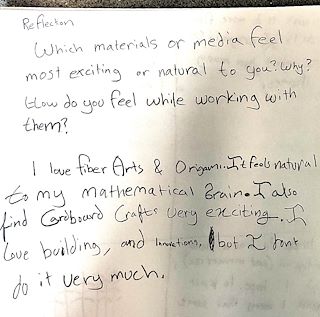 Reflection
Which materials or media feel
most exciting or natural to you? Why?
How do you feel while working with
them?
I love fiber Arts & Origami. It feels natural
to my mathematical Brain. I also
find Cardboard Crafts very exciting. I
Love building, and inventions, but I dont
do it very much.